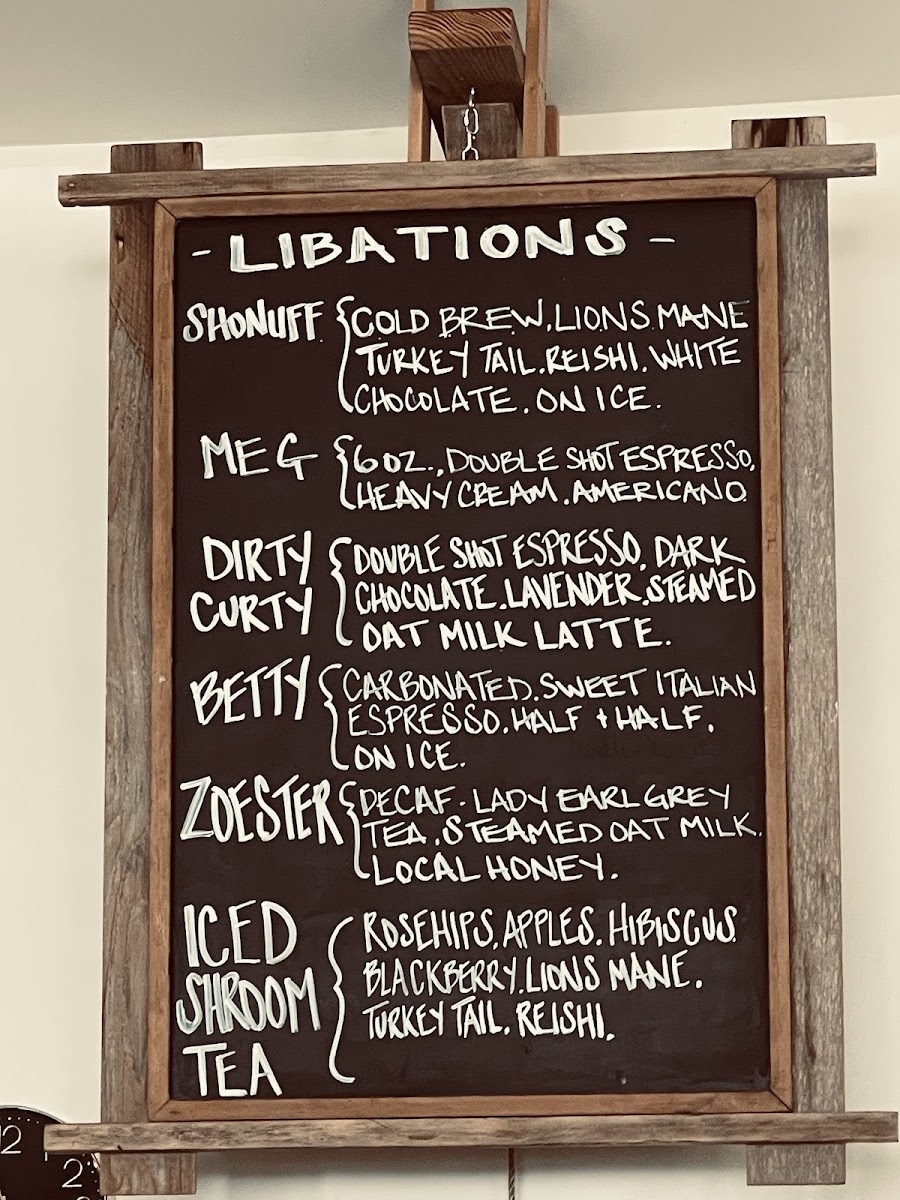 - LIBATIONS -
SHONUFF { COLD BREW. LIONS MANE
TURKEY TAIL. REISHI. WHITE
CHOCOLATE. ON ICE.
MEG { 6 OZ., DOUBLE SHOT ESPRESSO,
HEAVY CREAM. AMERICANO
DIRTY CURTY { DOUBLE SHOT ESPRESSO, DARK
CHOCOLATE. LAVENDER. STEAMED
OAT MILK LATTE.
BETTY { CARBONATED. SWEET ITALIAN
ESPRESSO. HALF + HALF.
ON ICE.
ZOESTER { DECAF. LADY EARL GREY
TEA. STEAMED OAT MILK.
LOCAL HONEY.
ICED SHROOM TEA { ROSEHIPS, APPLES. HIBISCUS.
BLACKBERRY. LIONS MANE.
TURKEY TAIL. REISHI.
12
1
2